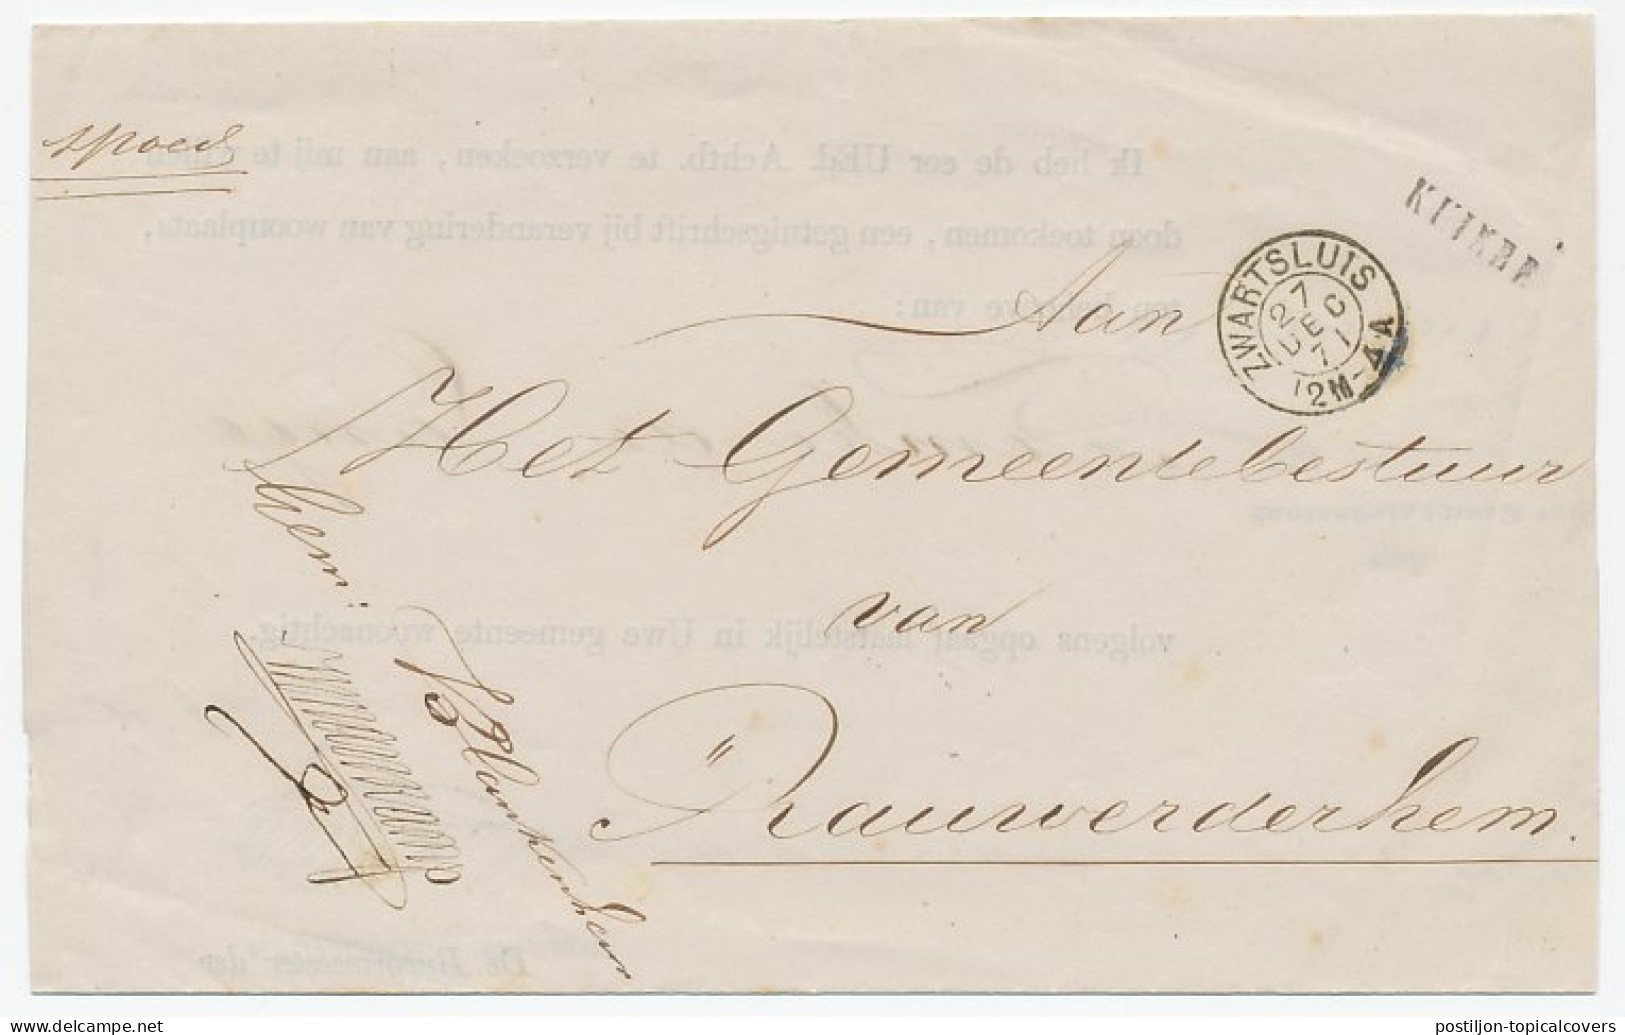 spoed
KUINRE
ZWARTSLUIS
27
DEC
71
12M-4A
Aan
Het Gemeentebestuur
van
Rauwerderhem.
Gem: Blankenham
Ik heb de eer UEd. Achtb. te verzoeken, aan mij te willen
doen toekomen, een getuigschrift bij verandering van woonplaats,
ten behoeve van:
volgens opgaaf laatstelijk in Uwe gemeente woonachtig.
De Burgemeester der
delcampe.net
postiljon-topicalcovers